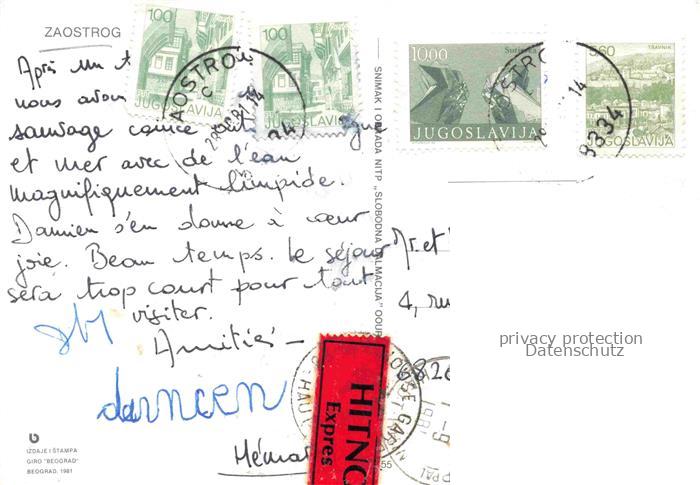 ZAOSTROG
Après un
nous avon
sauvage
et mer avec de l'eau
magnifiquement limpide.
Damien s'en donne à cœur
joie. Beau temps. Le séjour
sera trop court pour tout
visiter.
Amitiés -
damien
Mémar
100
JUGOSLAVIJA
100
JUGOSLAVIJA
AOSTRO
C
14
1000
Sutjeska
JUGOSLAVIJA
14
58334
5,60
TRAVNIK
JUGOSLAVIJA
SNIMAK I OBRADA NITP „SLOBODNA DALMACIJA" OOUR
Mr. et
4, ru
6826
privacy protection
Datenschutz
HITNO
Expres
1981
IZDAJE I ŠTAMPA
GIRO "BEOGRAD"
BEOGRAD, 1981
55